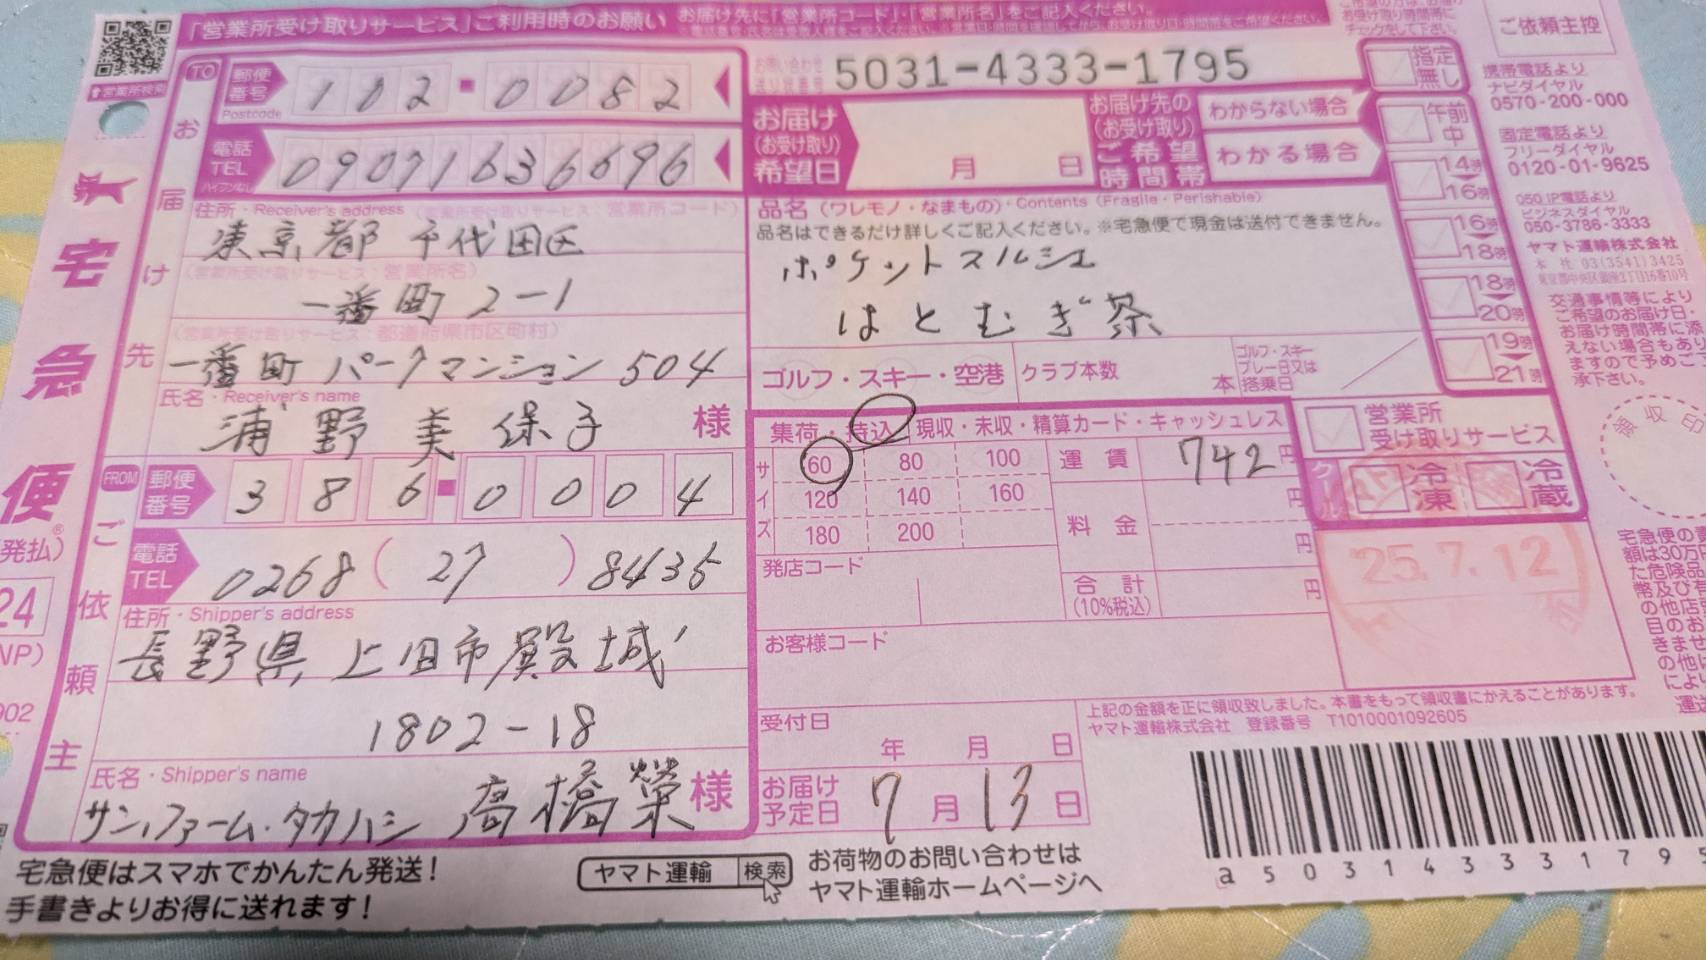 「営業所受け取りサービス」ご利用時のお願い
お届け先に「営業所コード」・「営業所名」をご記入ください。
営業所検索
宅急便
発払)
24
NP)
902
TO
お届け先
郵便番号
Postcode
102-0082
電話
TEL
09071636696
住所・Receiver's address
東京都 千代田区
一番町2-1
一番町パークマンション 504
氏名・Receiver's name
浦野美保子 様
FROM
ご依頼主
郵便番号
386-0004
電話
TEL
0268(27)8435
住所・Shipper's address
長野県上田市殿城
1802-18
氏名・Shipper's name
サンファーム・タカハシ 高橋榮 様
宅急便はスマホでかんたん発送!
手書きよりお得に送れます!
ヤマト運輸 検索
お荷物のお問い合わせは
ヤマト運輸ホームページへ
5031-4333-1795
お届け
(お受け取り)
希望日
月 日
お届け先の
(お受け取り)
ご希望
時間帯
わからない場合
わかる場合
指定無し
午前中
14時
16時
16時
18時
18時
20時
19時
21時
品名(ワレモノ・なまもの)・Contents (Fragile・Perishable)
品名はできるだけ詳しくご記入ください。※宅急便で現金は送付できません。
ポケットマルシェ
はとむぎ茶
ゴルフ・スキー・空港
クラブ本数
本
ゴルフ・スキー
プレー日又は
搭乗日
集荷・持込
現収・未収・精算カード・キャッシュレス
サイズ
60 80 100
120 140 160
180 200
運賃 742円
料金 円
円
合計
(10%税込) 円
営業所
受け取りサービス
クール
冷凍
冷蔵
25.7.12
発店コード
お客様コード
受付日
年 月 日
お届け
予定日
7月13日
上記の金額を正に領収致しました。本書をもって領収書にかえることがあります。
ヤマト運輸株式会社 登録番号 T1010001092605
a503143331795
ご依頼主控
携帯電話より
ナビダイヤル
0570-200-000
固定電話より
フリーダイヤル
0120-01-9625
050 IP電話より
ビジネスダイヤル
050-3786-3333
ヤマト運輸株式会社
本社 03(3541)3425
交通事情等により
ご希望のお届け日・
お届け時間帯に添
えない場合もあり
ますので予めご
承下さい。
領収印